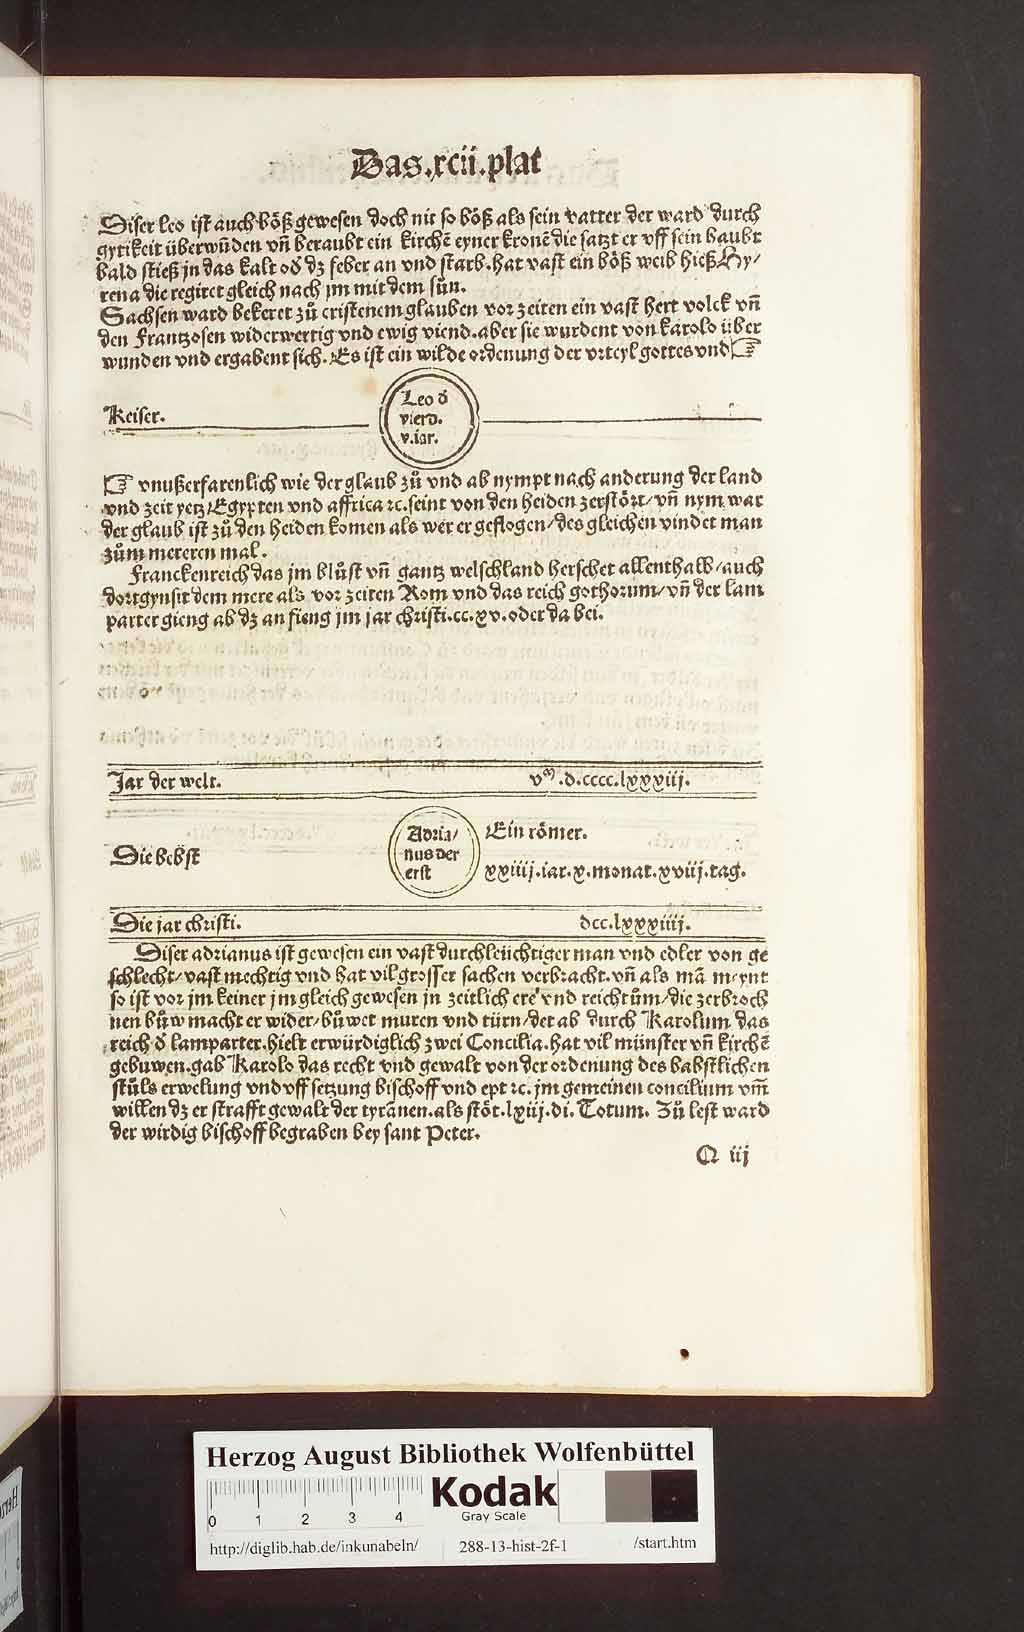 Das.xcii.plat
Diser Leo ist auch böß gewesen doch nit so böß als sein vatter der ward durch
gytikeit überwūden vñ beraubt ein kirchē eyner kronē die satzt er vff sein haubt
bald stieß jn das kalt od̕ dz feber an vnd starb. hat vast ein böß weib hieß Hy/
rena die regiret gleich nach jm mit dem sun.
Sachsen ward bekeret zů cristenem glauben vor zeiten ein vast hert volck vñ
den Frantzosen widerwertig vnd ewig viend. aber sie wurdent von karolo über
wunden vnd ergabent sich. Es ist ein wilde ordenung der vrteyl gottes vnd ☞
Keiser.
Leo d̕
vierd.
v.iar.
☞ vnußerfarenlich wie der glaub zů vnd ab nympt nach anderung der land
vnd zeit yetz Egypten vnd affrica ⁊c. seint von den heiden zerstört/ vñ nym war
der glaub ist zů den heiden komen als wer er geflogen/ des gleichen vindet man
zům mereren mal.
Franckenreich das jm blůst vñ gantz welschland herschet allenthalb/ auch
dort gynsit dem mere als vor zeiten Rom vnd das reich gothorum/ vñ der lam
parter gieng ab dz an fieng jm jar christi.cc.xv. oder da bei.
Jar der welt.
vᵐ.d.cccc.lxxxiij.
Die bebst
Adria/
nus der
erst
Ein römer.
xxiiij.iar.x.monat.xviij.tag.
Die jar christi.
dcc.lxxxiiij.
Diser adrianus ist gewesen ein vast durchleüchtiger man vnd edler von ge
schlecht/ vast mechtig vnd hat vil grosser sachen verbracht. vñ als mā meynt
so ist vor jm keiner jm gleich gewesen jn zeitlich ere vnd reichtům/ die zerbroch
nen bůw macht er wider/ bůwet muren vnd türn/ det ab durch Karolum das
reich d̕ lamparter. hielt erwürdiglich zwei Concilia. hat vil münster vñ kirchē
gebuwen. gab Karolo das recht vnd gewalt von der ordenung des babstlichen
stůls erwelung vnd vff setzung bischoff vnd ept ⁊c. jm gemeinen concilium vm̄
willen dz er strafft gewalt der tyrānen. als stöt.lxiij.di. Totum. Zů lest ward
der wirdig bischoff begraben bey sant Peter.
Q iij
Herzog August Bibliothek Wolfenbüttel
0 1 2 3 4
Kodak
Gray Scale
http://diglib.hab.de/inkunabeln/ 288-13-hist-2f-1 /start.htm